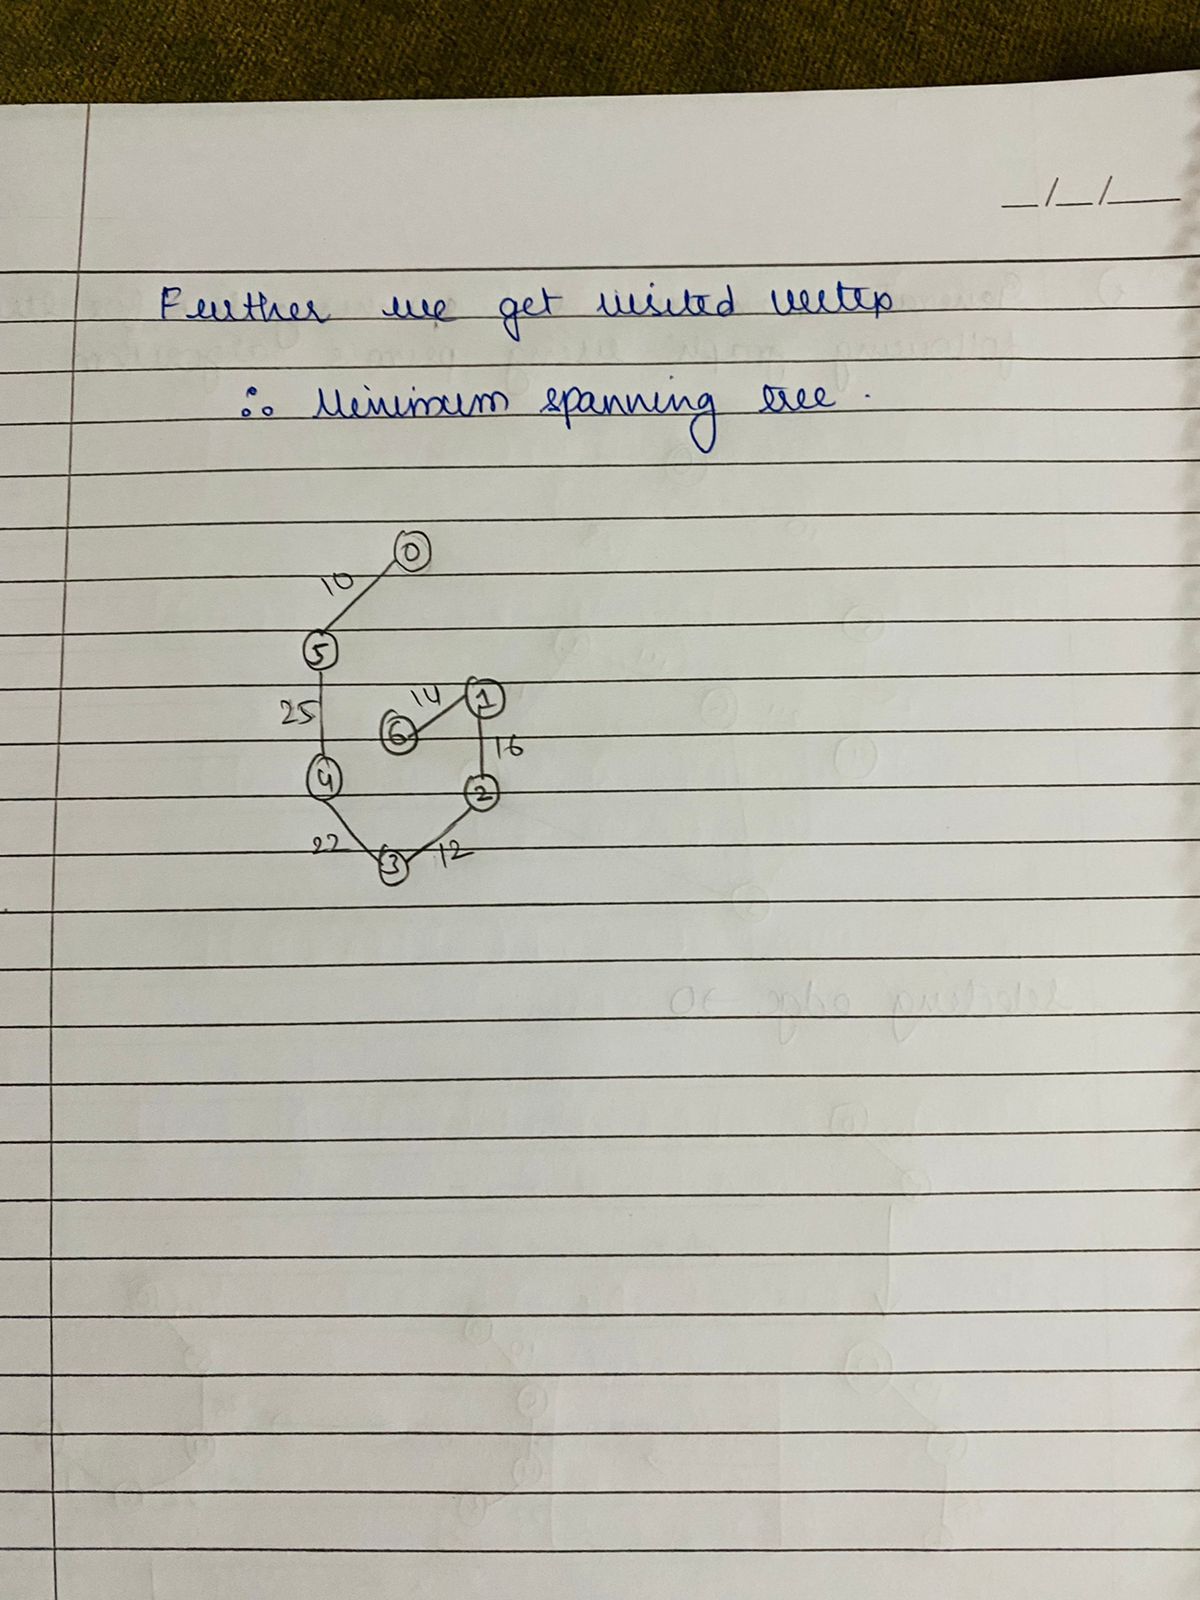 __/__/____
Further we get visited vertex
∴ Minimum spanning tree.
0
10
5
14 1
25
6
16
4
2
22 12
3